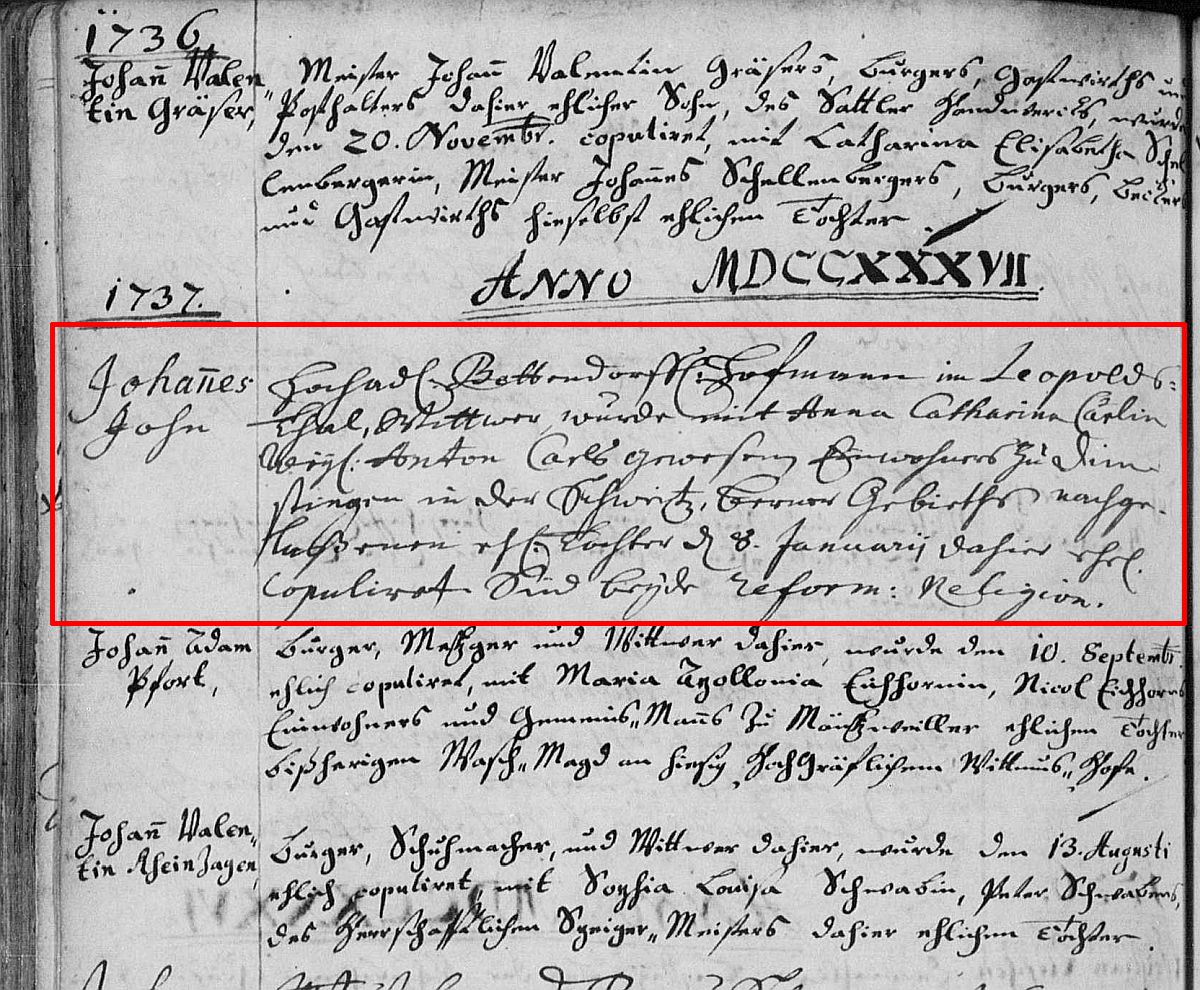 1736
Johañ Valen„
tin Gräser,
Meister Johañ Valentin Gräsers, Burgers, Gastwirths
Posthalters dahier ehlicher Sohn, des Sattler Handwercks, wurde
den 20. Novembr. copuliret, mit Catharina Elisabetha Schel
lenbergerin, Meister Johannes Schellenbergers, Burgers, Becker
und Gastwirths hieselbst ehlichen Tochter
ANNO MDCCXXXVII.
1737.
Johañes
John
Hochadl. Bettendorffl. Hofmann im Leopolds=
thal, Wittwer, wurde mit Anna Catharina Carlin
Weyl. Anton Carls gewesenen Einwohners zu
in der Schweitz, Berner Gebieths nachge-
laßenen ehl. Tochter d 8. Januarij dahier ehel.
copuliret. Sind beyde reform: Religion.
Johañ Adam
Pfort,
Burger, Metzger und Wittwer dahier, wurde den 10. Septembr.
ehlich copuliret, mit Maria Apollonia Eichhornin, Nicol Eichhorns
Einwohners und Gemeins„Mañs zu ehlichen Tochter
bißherigen Wasch„Magd an hiesig HochGräflichem Wittums„Hofe.
Johañ Valen„
tin Rheinzagen,
Burger, Schuhmacher, und Wittwer dahier, wurde den 13. Augusti
ehlich copuliret mit Sophia Louisa Schwabin, Peter Schwabens,
des Herrschafftlichen Meisters dahier ehlichen Tochter.